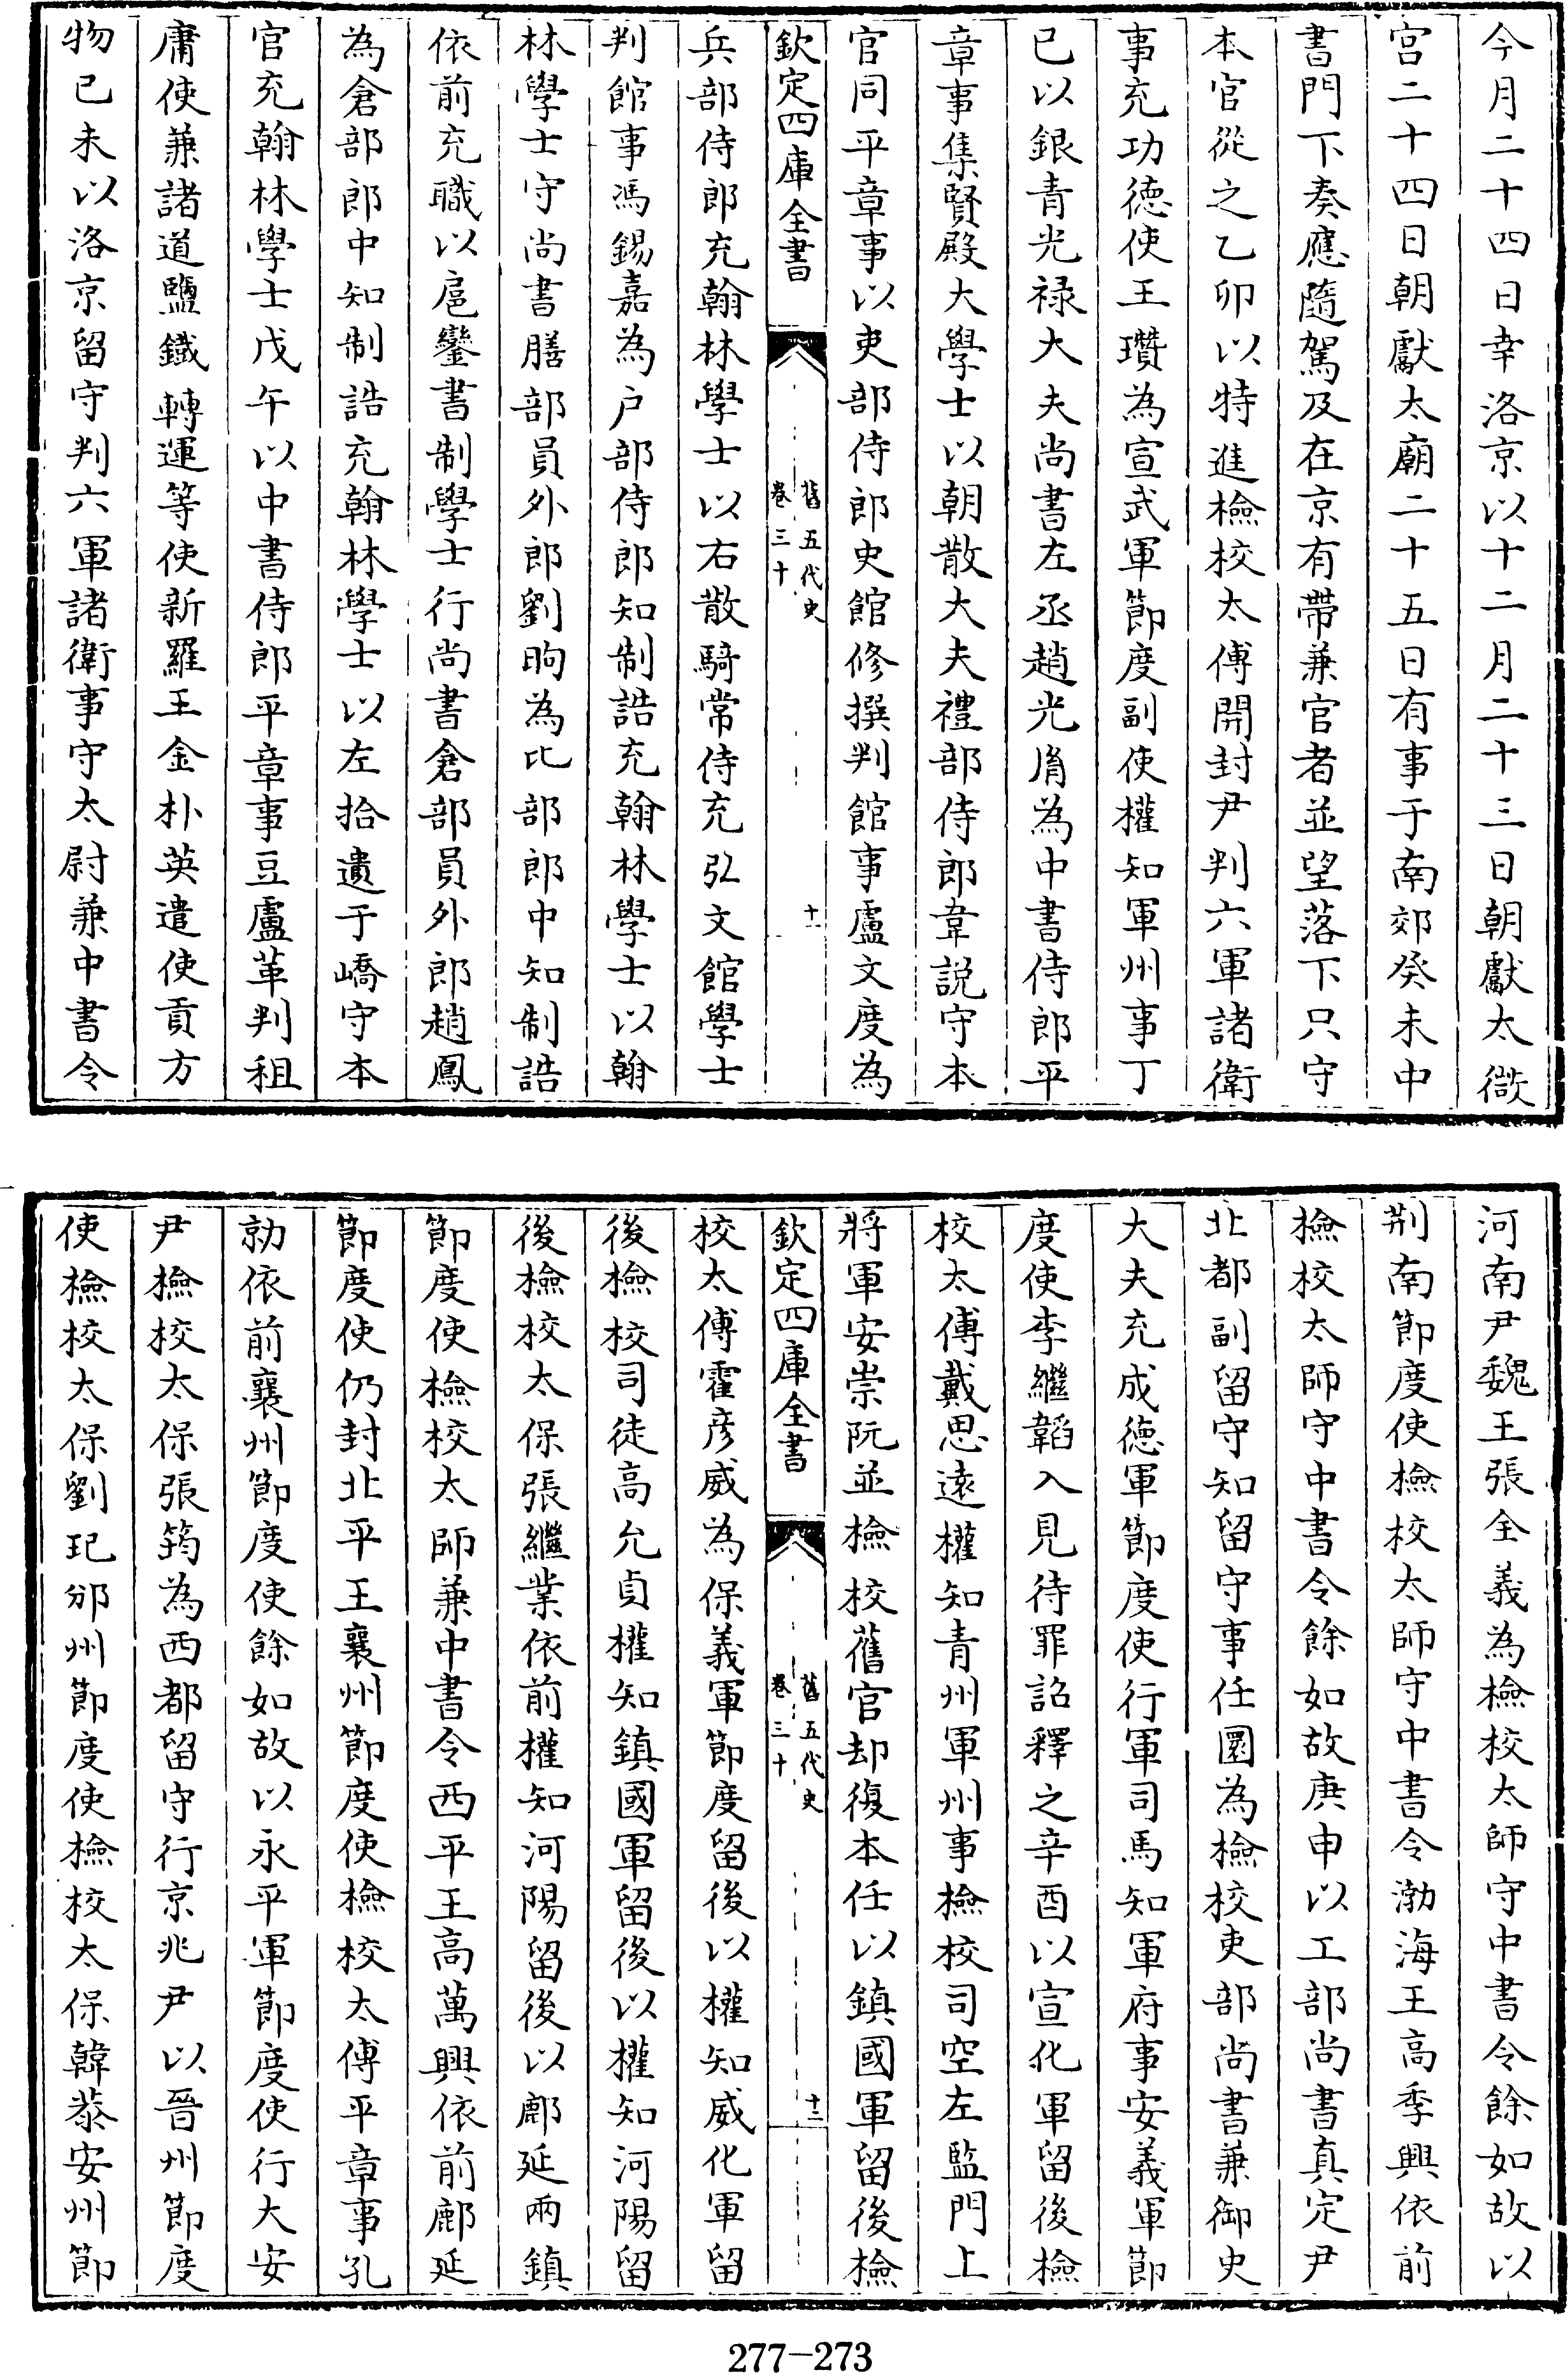 今月二十四日幸洛京以十二月二十三日朝獻太微
宫二十四日朝獻太廟二十五日有事于南郊癸未中
書門下奏應隨駕及在京有帶兼官者並望落下只守
本官從之乙卯以特進檢校太傅開封尹判六軍諸衛
事充功徳使王瓚為宣武軍節度副使權知軍州事丁
已以銀青光禄大夫尚書左丞趙光胤為中書侍郎平
章事集賢殿大學士以朝散大夫禮部侍郎韋説守本
官同平章事以吏部侍郎史館修撰判館事盧文度為
欽定四庫全書
舊五代史
卷三十
十一
兵部侍郎充翰林學士以右散騎常侍充弘文館學士
判館事馮錫嘉為户部侍郎知制誥充翰林學士以翰
林學士守尚書膳部員外郎劉昫為比部郎中知制誥
依前充職以扈鑾書制學士行尚書倉部員外郎趙鳳
為倉部郎中知制誥充翰林學士以左拾遺于嶠守本
官充翰林學士戊午以中書侍郎平章事豆盧革判租
庸使兼諸道鹽鐵轉運等使新羅王金朴英遣使貢方
物已未以洛京留守判六軍諸衛事守太尉兼中書令
河南尹魏王張全義為檢校太師守中書令餘如故以
荆南節度使檢校太師守中書令渤海王高季興依前
檢校太師守中書令餘如故庚申以工部尚書真定尹
北都副留守知留守事任圜為檢校吏部尚書兼御史
大夫充成徳軍節度使行軍司馬知軍府事安義軍節
度使李繼韜入見待罪詔釋之辛酉以宣化軍留後檢
校太傅戴思遠權知青州軍州事檢校司空左監門上
將軍安崇阮並檢校舊官却復本任以鎮國軍留後檢
欽定四庫全書
舊五代史
卷三十
十二
校太傅霍彦威為保義軍節度留後以權知威化軍留
後檢校司徒高允貞權知鎮國軍留後以權知河陽留
後檢校太保張繼業依前權知河陽留後以鄜延兩鎮
節度使檢校太師兼中書令西平王高萬興依前鄜延
節度使仍封北平王襄州節度使檢校太傅平章事孔
勍依前襄州節度使餘如故以永平軍節度使行大安
尹檢校太保張筠為西都留守行京兆尹以晉州節度
使檢校太保劉玘邠州節度使檢校太保韓恭安州節
277-273